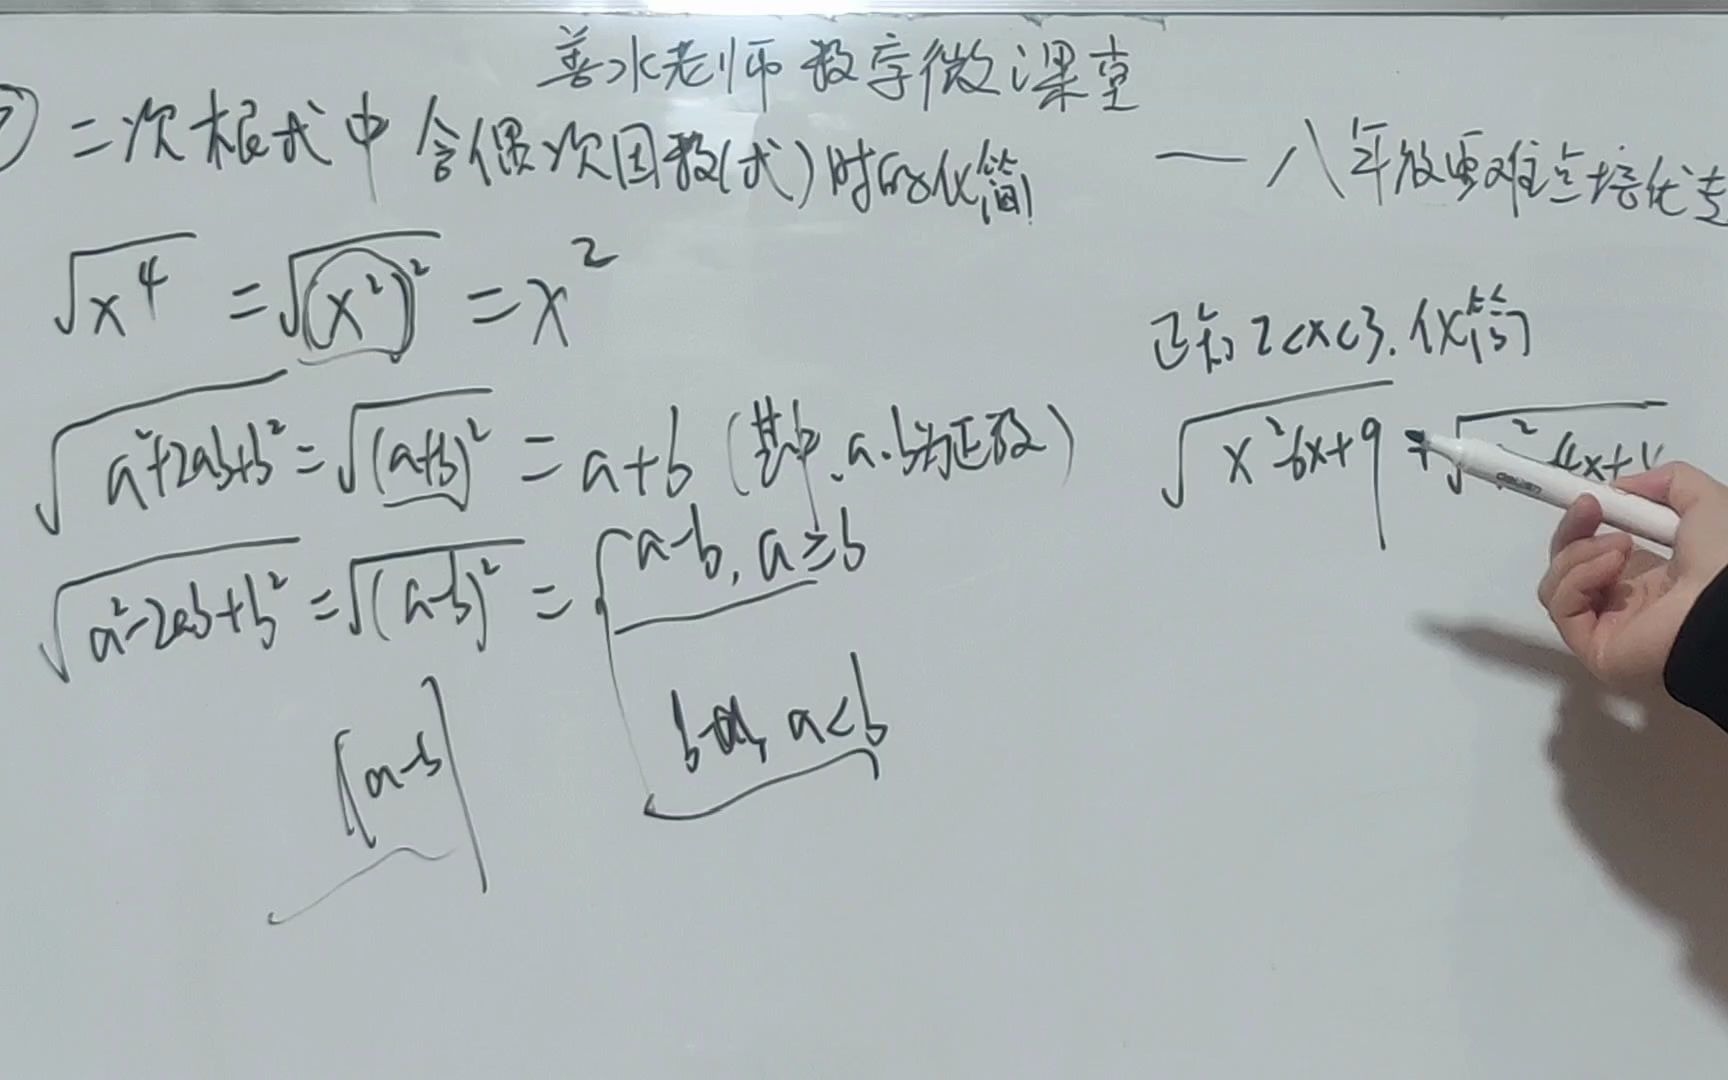 善水老师数学微课堂
二次根式中含偶次因数(式)时的化简
——八年级重难点培优专
√x⁴ = √(x²)² = x²
√a²+2ab+b² = √(a+b)² = a+b (其中,a.b为正数)
√a²-2ab+b² = √(a-b)² = { a-b, a≥b
b-a, a<b
|a-b|
已知2<x<3.化简
√x²-6x+9 + √ ² 4x+4